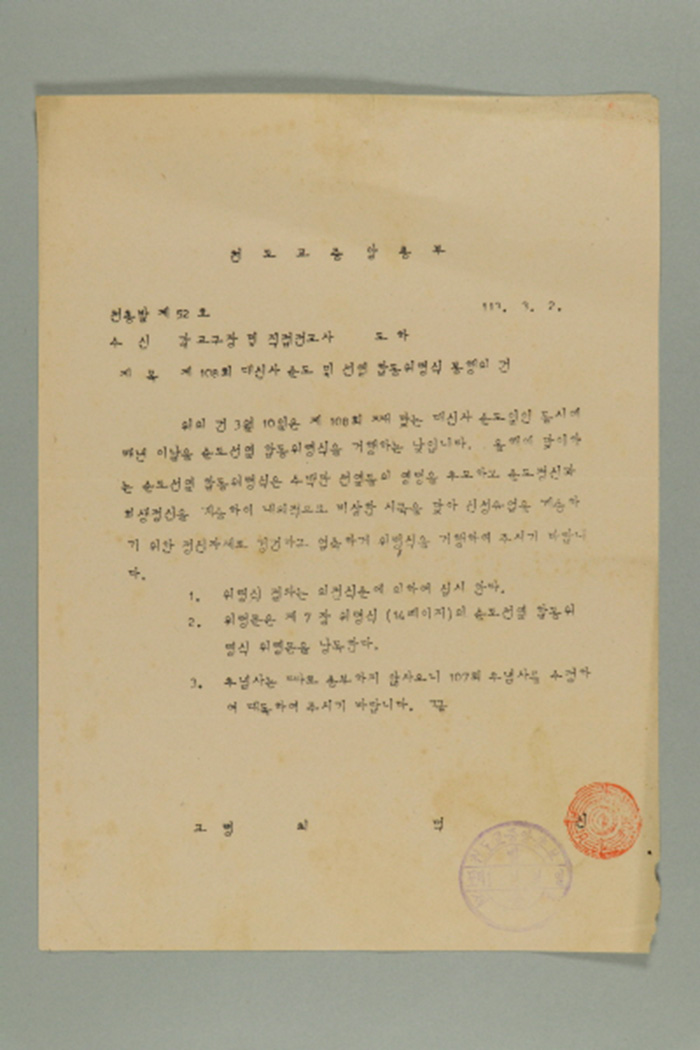 천 도 교 중 앙 총 부
천총발 제 52 호 112. 3. 2.
수 신 각 교구장 및 직접전교사 도 하
제 목 제 108회 대신사 순도 및 선열 합동위령식 봉행의 건
위의 건 3월 10일은 제 108회 째 맞는 대신사 순도일인 동시에
매년 이날을 순도선열 합동위령식을 거행하는 날입니다. 올해에 맞이하
는 순도선열 합동위령식은 수백만 선열들의 영령을 추모하고 순도정신과
희생정신을 계승하여 내외적으로 비상한 시국을 맞아 신성유업을 계승하
기 위한 정신자세로 경건하고 엄숙하게 위령식을 거행하여 주시기 바랍니
다.
1. 위령식 절차는 의전식순에 의하여 십시 한다.
2. 위령문은 제 7 장 위령식 (14페이지)의 순도선열 합동위
령식 위령문을 낭독한다.
3. 추념사는 따로 송부하지 않사오니 107회 추념사를 수정하
여 대독하여 주시기 바랍니다. 끝
교 령 최 덕 신